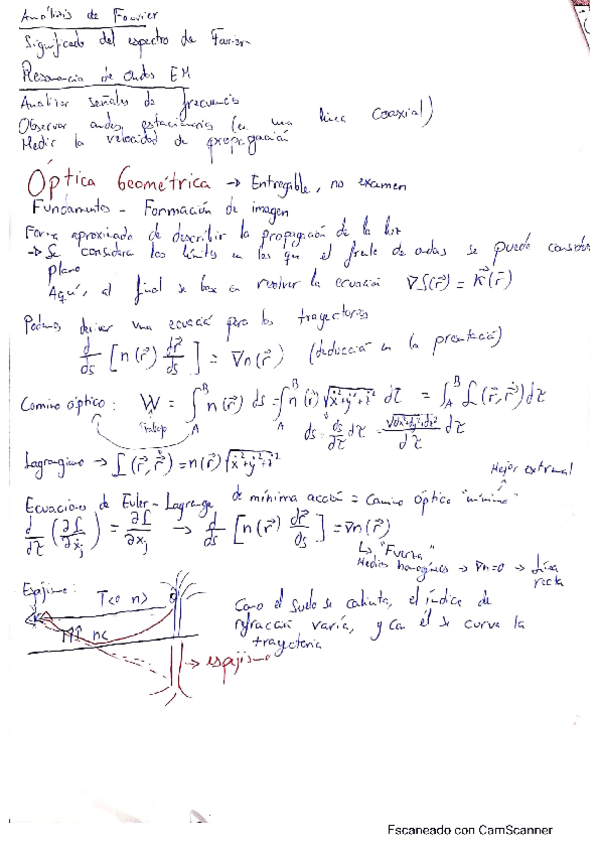 Análisis de Fourier
Significado del espectro de Fourier
Resonancia de ondas EM
Analizar señales de frecuencia
Observar ondas estacionarias (en una línea coaxial)
Medir la velocidad de propagación
Óptica Geométrica → Entregable, no examen
Fundamentos - Formación de imagen
Forma aproximada de describir la propagación de la luz
→ Se considera los límites en los que el frente de ondas se puede considerar
plano
Aquí, al final se basa en resolver la ecuación ∇S(r⃗) = k⃗(r⃗)
Podemos derivar una ecuació para las trayectorias
d/ds [n(r⃗) dr⃗/ds] = ∇n(r⃗) (deducción en la presentació)
Camino óptico: W = ∫_A^B n(r⃗) ds = ∫_A^B n(r⃗) √(ẋ²+ẏ²+ż²) dτ = ∫_A^B L(r⃗, ṙ⃗) dτ
Trabajo
ds = ds/dτ dτ = √(dx²+dy²+dz²)/dτ dτ
Lagrangiano → L(r⃗, ṙ⃗) = n(r⃗) √(ẋ²+ẏ²+ż²)
Mejor extremal
Ecuaciones de Euler-Lagrange de mínima acción = Camino óptico "mínimo"
d/dτ (∂L/∂ẋⱼ) = ∂L/∂xⱼ → d/ds [n(r⃗) dr⃗/ds] = ∇n(r⃗)
↳ "Fuerza"
Medios homogéneos → ∇n=0 → Línea
recta
Espejismo:
T< n>
T↑↑ n<
→ espejismo
Como el suelo se calienta, el índice de
refracción varía, y con él se curva la
trayectoria
Escaneado con CamScanner